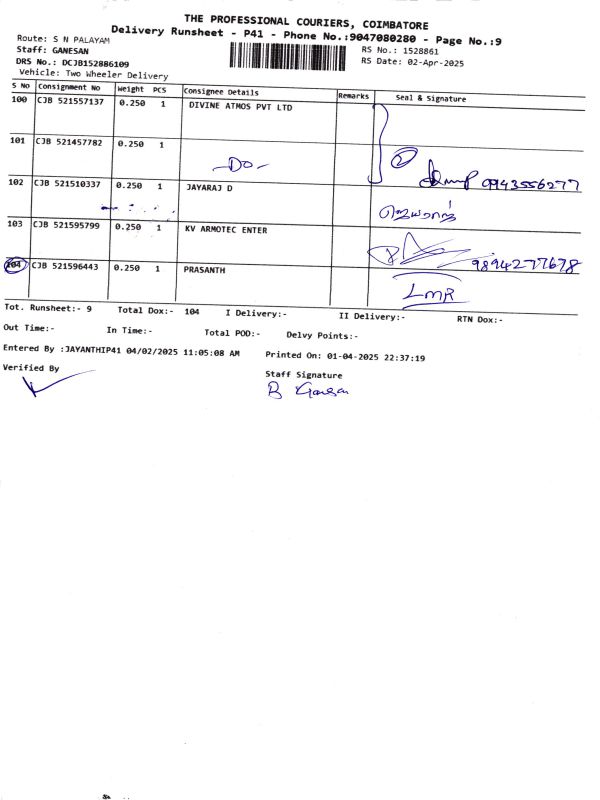 THE PROFESSIONAL COURIERS, COIMBATORE
Delivery Runsheet - P41 - Phone No.:9047080280 - Page No.:9
Route: S N PALAYAM
RS No.: 1528861
Staff: GANESAN
RS Date: 02-Apr-2025
DRS No.: DCJB152886109
Vehicle: Two Wheeler Delivery
S No Consignment No Weight PCS Consignee Details Remarks Seal & Signature
100 CJB 521557137 0.250 1 DIVINE ATMOS PVT LTD
101 CJB 521457782 0.250 1
-DO- 2
9943556277
102 CJB 521510337 0.250 1 JAYARAJ D
ஜெயராஜ்
103 CJB 521595799 0.250 1 KV ARMOTEC ENTER
9894277678
104 CJB 521596443 0.250 1 PRASANTH
LMR
Tot. Runsheet:- 9 Total Dox:- 104 I Delivery:- II Delivery:- RTN Dox:-
Out Time:- In Time:- Total POD:- Delvy Points:-
Entered By :JAYANTHIP41 04/02/2025 11:05:08 AM Printed On: 01-04-2025 22:37:19
Verified By
Staff Signature
B Ganesan